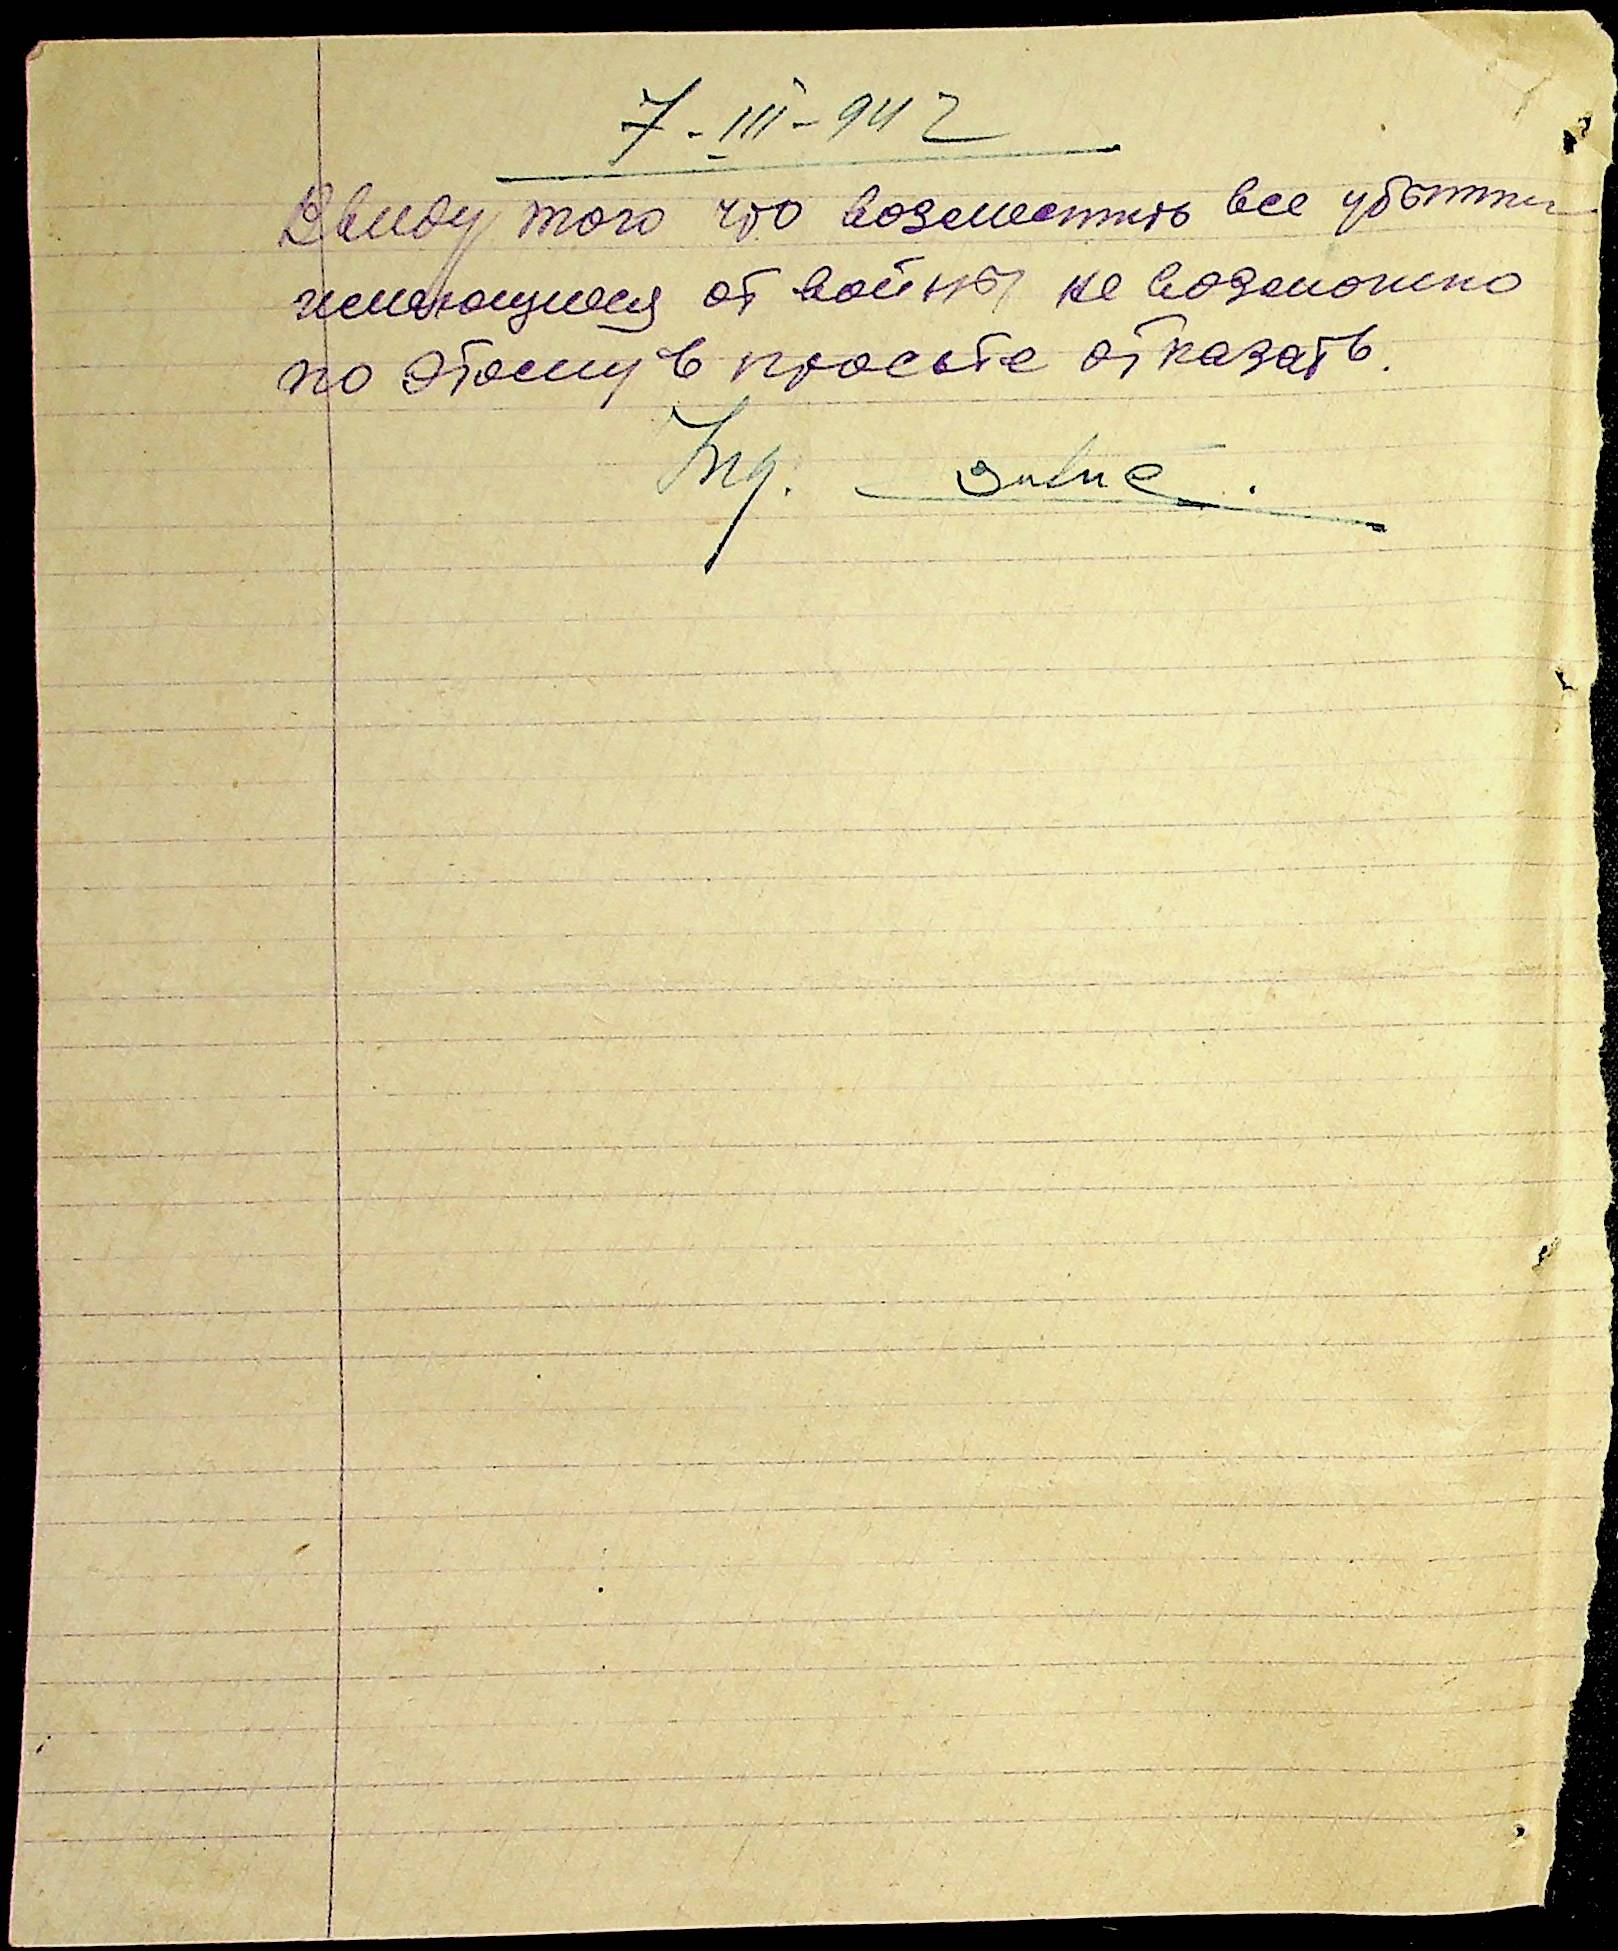 7-III-942
Ввиду того что возместить все убытки
имеющиеся от войны не возможно
по этому в просьбе отказать.
Ing.